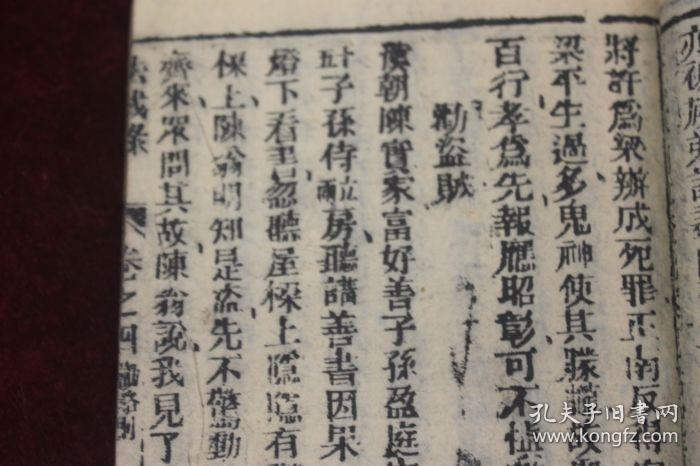 將許爲梁辦成死罪正
梁平生過多鬼神使其
百行孝爲先報應昭彰可不
勸盜賊
漢朝陳實家富好善子孫盈庭
子孫侍立房聽講善書因果
燈下看書忽聽屋樑上隱隱有
樑上陳翁明知是盜先不驚動
齊來深問其故陳翁說我見了
卷之四
孔夫子旧书网
www.kongfz.com